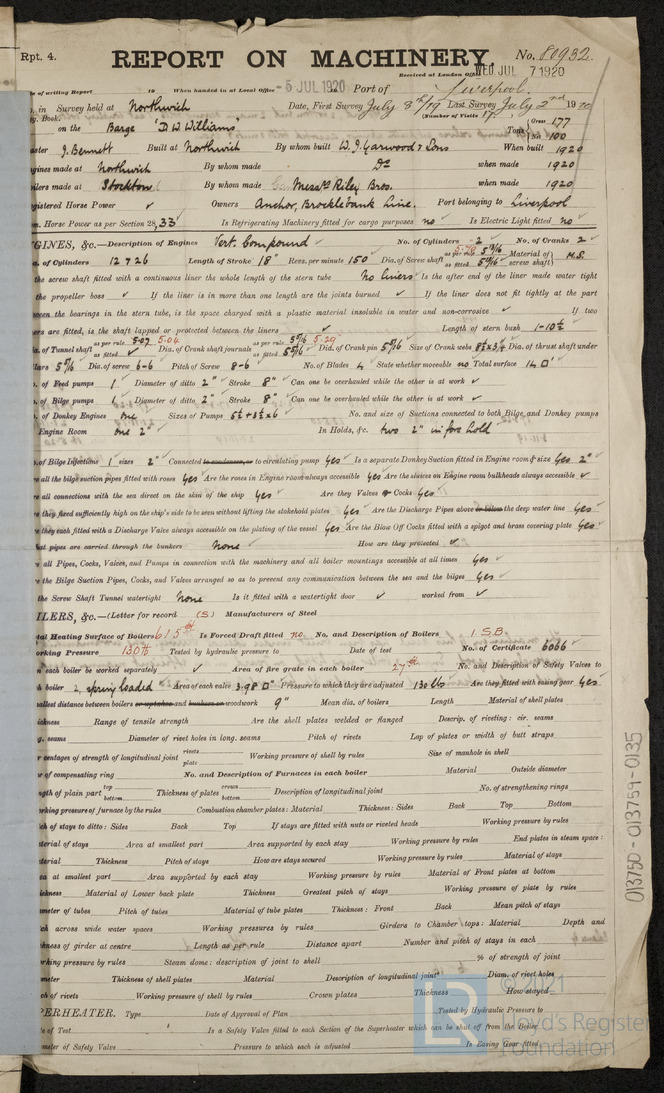 Rpt. 4.
REPORT ON MACHINERY
No. 80932.
Received at London Office WED JUL 7 1920
of writing Report 19 When handed in at Local Office - 5 JUL 1920 Port of Liverpool.
in Survey held at Northwich Date, First Survey July 8th/19 Last Survey July 2nd 1920
Book. (Number of Visits 17
on the Barge 'D.W. Williams' Tons { Gross 177 Net 100
J. Bennett Built at Northwich By whom built W. J. Yarwood & Sons When built 1920
gines made at Northwich By whom made Do when made 1920
oilers made at Stockton By whom made Messrs Riley Bros. when made 1920
gistered Horse Power Owners Anchor, Brocklebank Line. Port belonging to Liverpool
Horse Power as per Section 28 33 Is Refrigerating Machinery fitted for cargo purposes no Is Electric Light fitted no
GINES, &c.—Description of Engines Vert. Compound No. of Cylinders 2 No. of Cranks 2
of Cylinders 12 & 26 Length of Stroke 18" Revs. per minute 150 Dia. of Screw shaft as per rule 5.78 as fitted Material of screw shaft } M.S.
the screw shaft fitted with a continuous liner the whole length of the stern tube No liners Is the after end of the liner made water tight
the propeller boss If the liner is in more than one length are the joints burned If the liner does not fit tightly at the part
ween the bearings in the stern tube, is the space charged with a plastic material insoluble in water and non-corrosive If two
ers are fitted, is the shaft lapped or protected between the liners Length of stern bush 1-10½
of Tunnel shaft as per rule 5.07 5.04 as fitted Dia. of Crank shaft journals as per rule 5.29 as fitted Dia. of Crank pin Size of Crank webs Dia. of thrust shaft under
llars Dia. of screw 6-6 Pitch of Screw 8-6 No. of Blades 4 State whether moveable no Total surface 14 □'
of Feed pumps 1 Diameter of ditto 2" Stroke 8" Can one be overhauled while the other is at work
of Bilge pumps 1 Diameter of ditto 2" Stroke 8" Can one be overhauled while the other is at work
of Donkey Engines one Sizes of Pumps No. and size of Suctions connected to both Bilge and Donkey pumps
Engine Room one 2" In Holds, &c. two 2" in fore hold
of Bilge Injections 1 sizes 2" Connected to condenser, or to circulating pump Yes Is a separate Donkey Suction fitted in Engine room & size Yes 2"
all the bilge suction pipes fitted with roses Yes Are the roses in Engine room always accessible Yes Are the sluices on Engine room bulkheads always accessible
all connections with the sea direct on the skin of the ship Yes Are they Valves or Cocks Yes
they fixed sufficiently high on the ship's side to be seen without lifting the stokehold plates Yes Are the Discharge Pipes above or below the deep water line Yes
they each fitted with a Discharge Valve always accessible on the plating of the vessel Yes Are the Blow Off Cocks fitted with a spigot and brass covering plate Yes
at pipes are carried through the bunkers None How are they protected
all Pipes, Cocks, Valves, and Pumps in connection with the machinery and all boiler mountings accessible at all times Yes
the Bilge Suction Pipes, Cocks, and Valves arranged so as to prevent any communication between the sea and the bilges Yes
the Screw Shaft Tunnel watertight None Is it fitted with a watertight door worked from
ILERS, &c.—(Letter for record (S) Manufacturers of Steel
tal Heating Surface of Boilers 615 Is Forced Draft fitted no. No. and Description of Boilers 1 S.B.
orking Pressure 130 lb Tested by hydraulic pressure to Date of test No. of Certificate 6066
each boiler be worked separately Area of fire grate in each boiler 27 No. and Description of Safety Valves to
boiler 2, spring loaded Area of each valve 3.98 □" Pressure to which they are adjusted 130 lbs Are they fitted with easing gear Yes
allest distance between boilers or uptakes and bunkers or woodwork 9" Mean dia. of boilers Length Material of shell plates
ickness Range of tensile strength Are the shell plates welded or flanged Descrip. of riveting: cir. seams
seams Diameter of rivet holes in long. seams Pitch of rivets Lap of plates or width of butt straps
centages of strength of longitudinal joint rivets plate Working pressure of shell by rules Size of manhole in shell
of compensating ring No. and Description of Furnaces in each boiler Material Outside diameter
gth of plain part top bottom Thickness of plates crown bottom Description of longitudinal joint No. of strengthening rings
rking pressure of furnace by the rules Combustion chamber plates: Material Thickness: Sides Back Top Bottom
ch of stays to ditto: Sides Back Top If stays are fitted with nuts or riveted heads Working pressure by rules
aterial of stays Area at smallest part Area supported by each stay Working pressure by rules End plates in steam space:
aterial Thickness Pitch of stays How are stays secured Working pressure by rules Material of stays
ea at smallest part Area supported by each stay Working pressure by rules Material of Front plates at bottom
ickness Material of Lower back plate Thickness Greatest pitch of stays Working pressure of plate by rules
ameter of tubes Pitch of tubes Material of tube plates Thickness: Front Back Mean pitch of stays
ch across wide water spaces Working pressures by rules Girders to Chamber tops: Material Depth and
ickness of girder at centre Length as per rule Distance apart Number and pitch of stays in each
orking pressure by rules Steam dome: description of joint to shell % of strength of joint
ameter Thickness of shell plates Material Description of longitudinal joint Diam. of rivet holes
ch of rivets Working pressure of shell by rules Crown plates Thickness How stayed
PERHEATER. Type Date of Approval of Plan Tested by Hydraulic Pressure to
of Test Is a Safety Valve fitted to each Section of the Superheater which can be shut off from the Boiler
ameter of Safety Valve Pressure to which each is adjusted Is Easing Gear fitted
013750-013759-0135
LR
© 2021
Lloyd's Register
Foundation